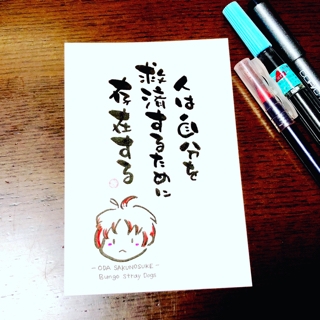 人は自分を
救済するために
存在する
- ODA SAKUNOSUKE -
Bungo Stray Dogs